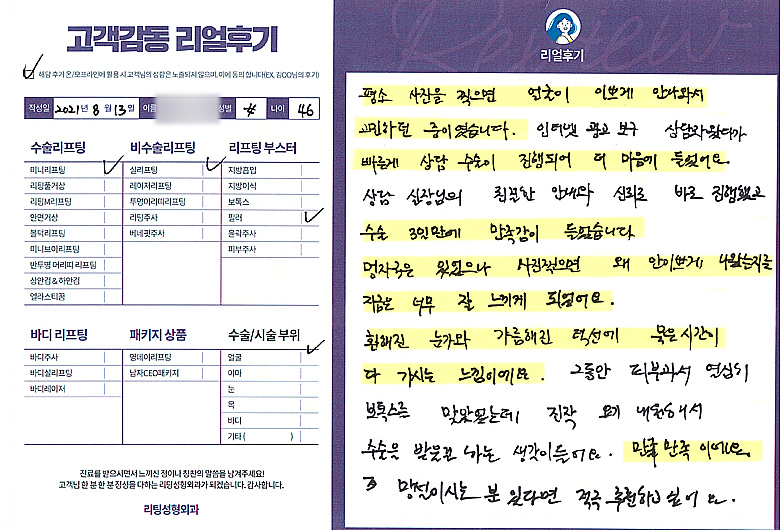 고객감동 리얼후기
해당 후기 온/오프라인에 활용 시 고객님의 성함은 노출되지 않으며, 이에 동의 합니다(EX. 김OO님의 후기)
작성일 2021년 8월 13일 이름 성별 나이 46
수술리프팅
미니리프팅
리팅풀거상
리팅M리프팅
안면거상
볼턱리프팅
미니브이리프팅
반투명 머리띠 리프팅
상안검&하안검
엘라스티꿈
비수술리프팅
실리프팅
레이저리프팅
투명머리띠리프팅
리팅주사
베네핏주사
리프팅 부스터
지방흡입
지방이식
보톡스
필러
윤곽주사
피부주사
바디 리프팅
바디주사
바디실리프팅
바디레이저
패키지 상품
영데이리프팅
남자CEO패키지
수술/시술 부위
얼굴
이마
눈
목
바디
기타( )
진료를 받으시면서 느끼신 점이나 칭찬의 말씀을 남겨주세요!
고객님 한 분 한 분 정성을 다하는 리팅성형외과가 되겠습니다. 감사합니다.
리팅성형외과
Review
리얼후기
평소 사진을 찍으면 얼굴이 이쁘게 안나와서
고민하던 중이였습니다. 인터넷 광고 보구 상담와왔다가
빠르게 상담 수술이 진행되어 더 마음에 들었어요.
상담 실장님의 친절한 안내와 신뢰로 바로 진행했고
수술 3일만에 만족감이 들었습니다
멍자국은 있었으나 사진찍으면 왜 안이쁘게 나왔는지를
지금은 너무 잘 느끼게 되었어요.
환해진 눈가와 갸름해진 턱선에 묵은 시간이
다 가시는 느낌이에요. 그동안 피부과서 열심히
보톡스를 맞았었는데 진작 왜 내원해서
수술을 받을껄 하는 생각이들어요. 만족 만족 이에요.
망설이시는 분 있다면 적극 추천하고 싶어요.